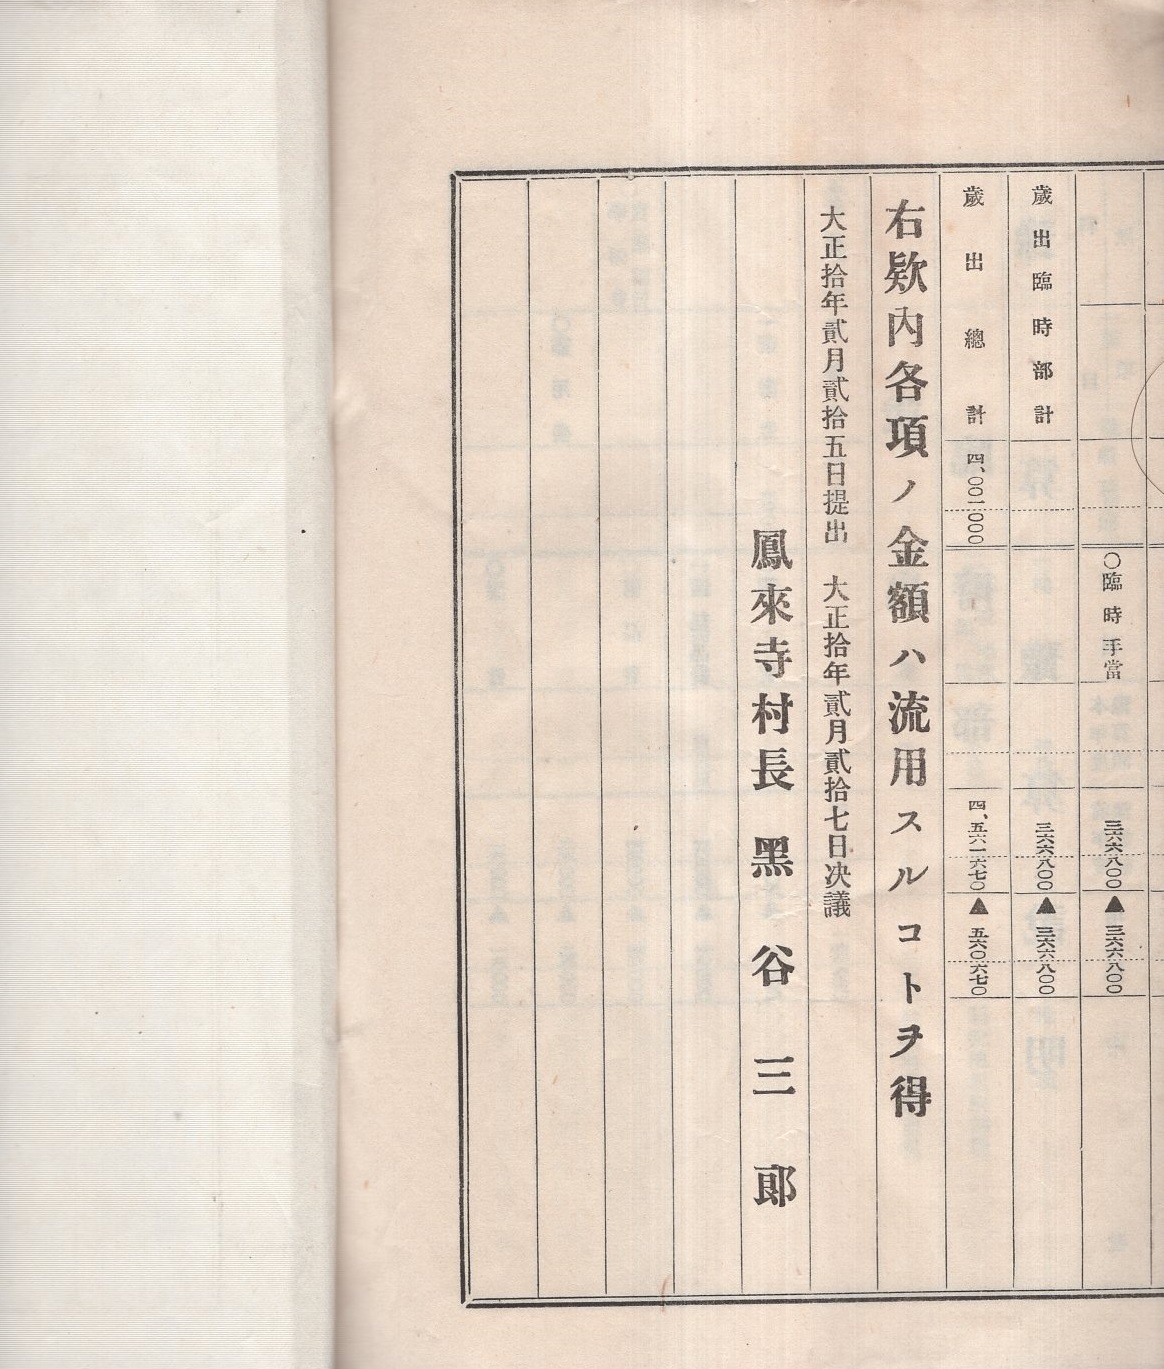 〇臨時手當 三六六八〇〇 ▲三六六八〇〇
歲出臨時部計 三六六八〇〇 ▲三六六八〇〇
歲出總計 四、〇〇一〇〇〇 四、五六一六七〇 ▲五六〇六七〇
右欵內各項ノ金額ハ流用スルコトヲ得
大正拾年貳月貳拾五日提出 大正拾年貳月貳拾七日決議
鳳來寺村長 黑谷三郞